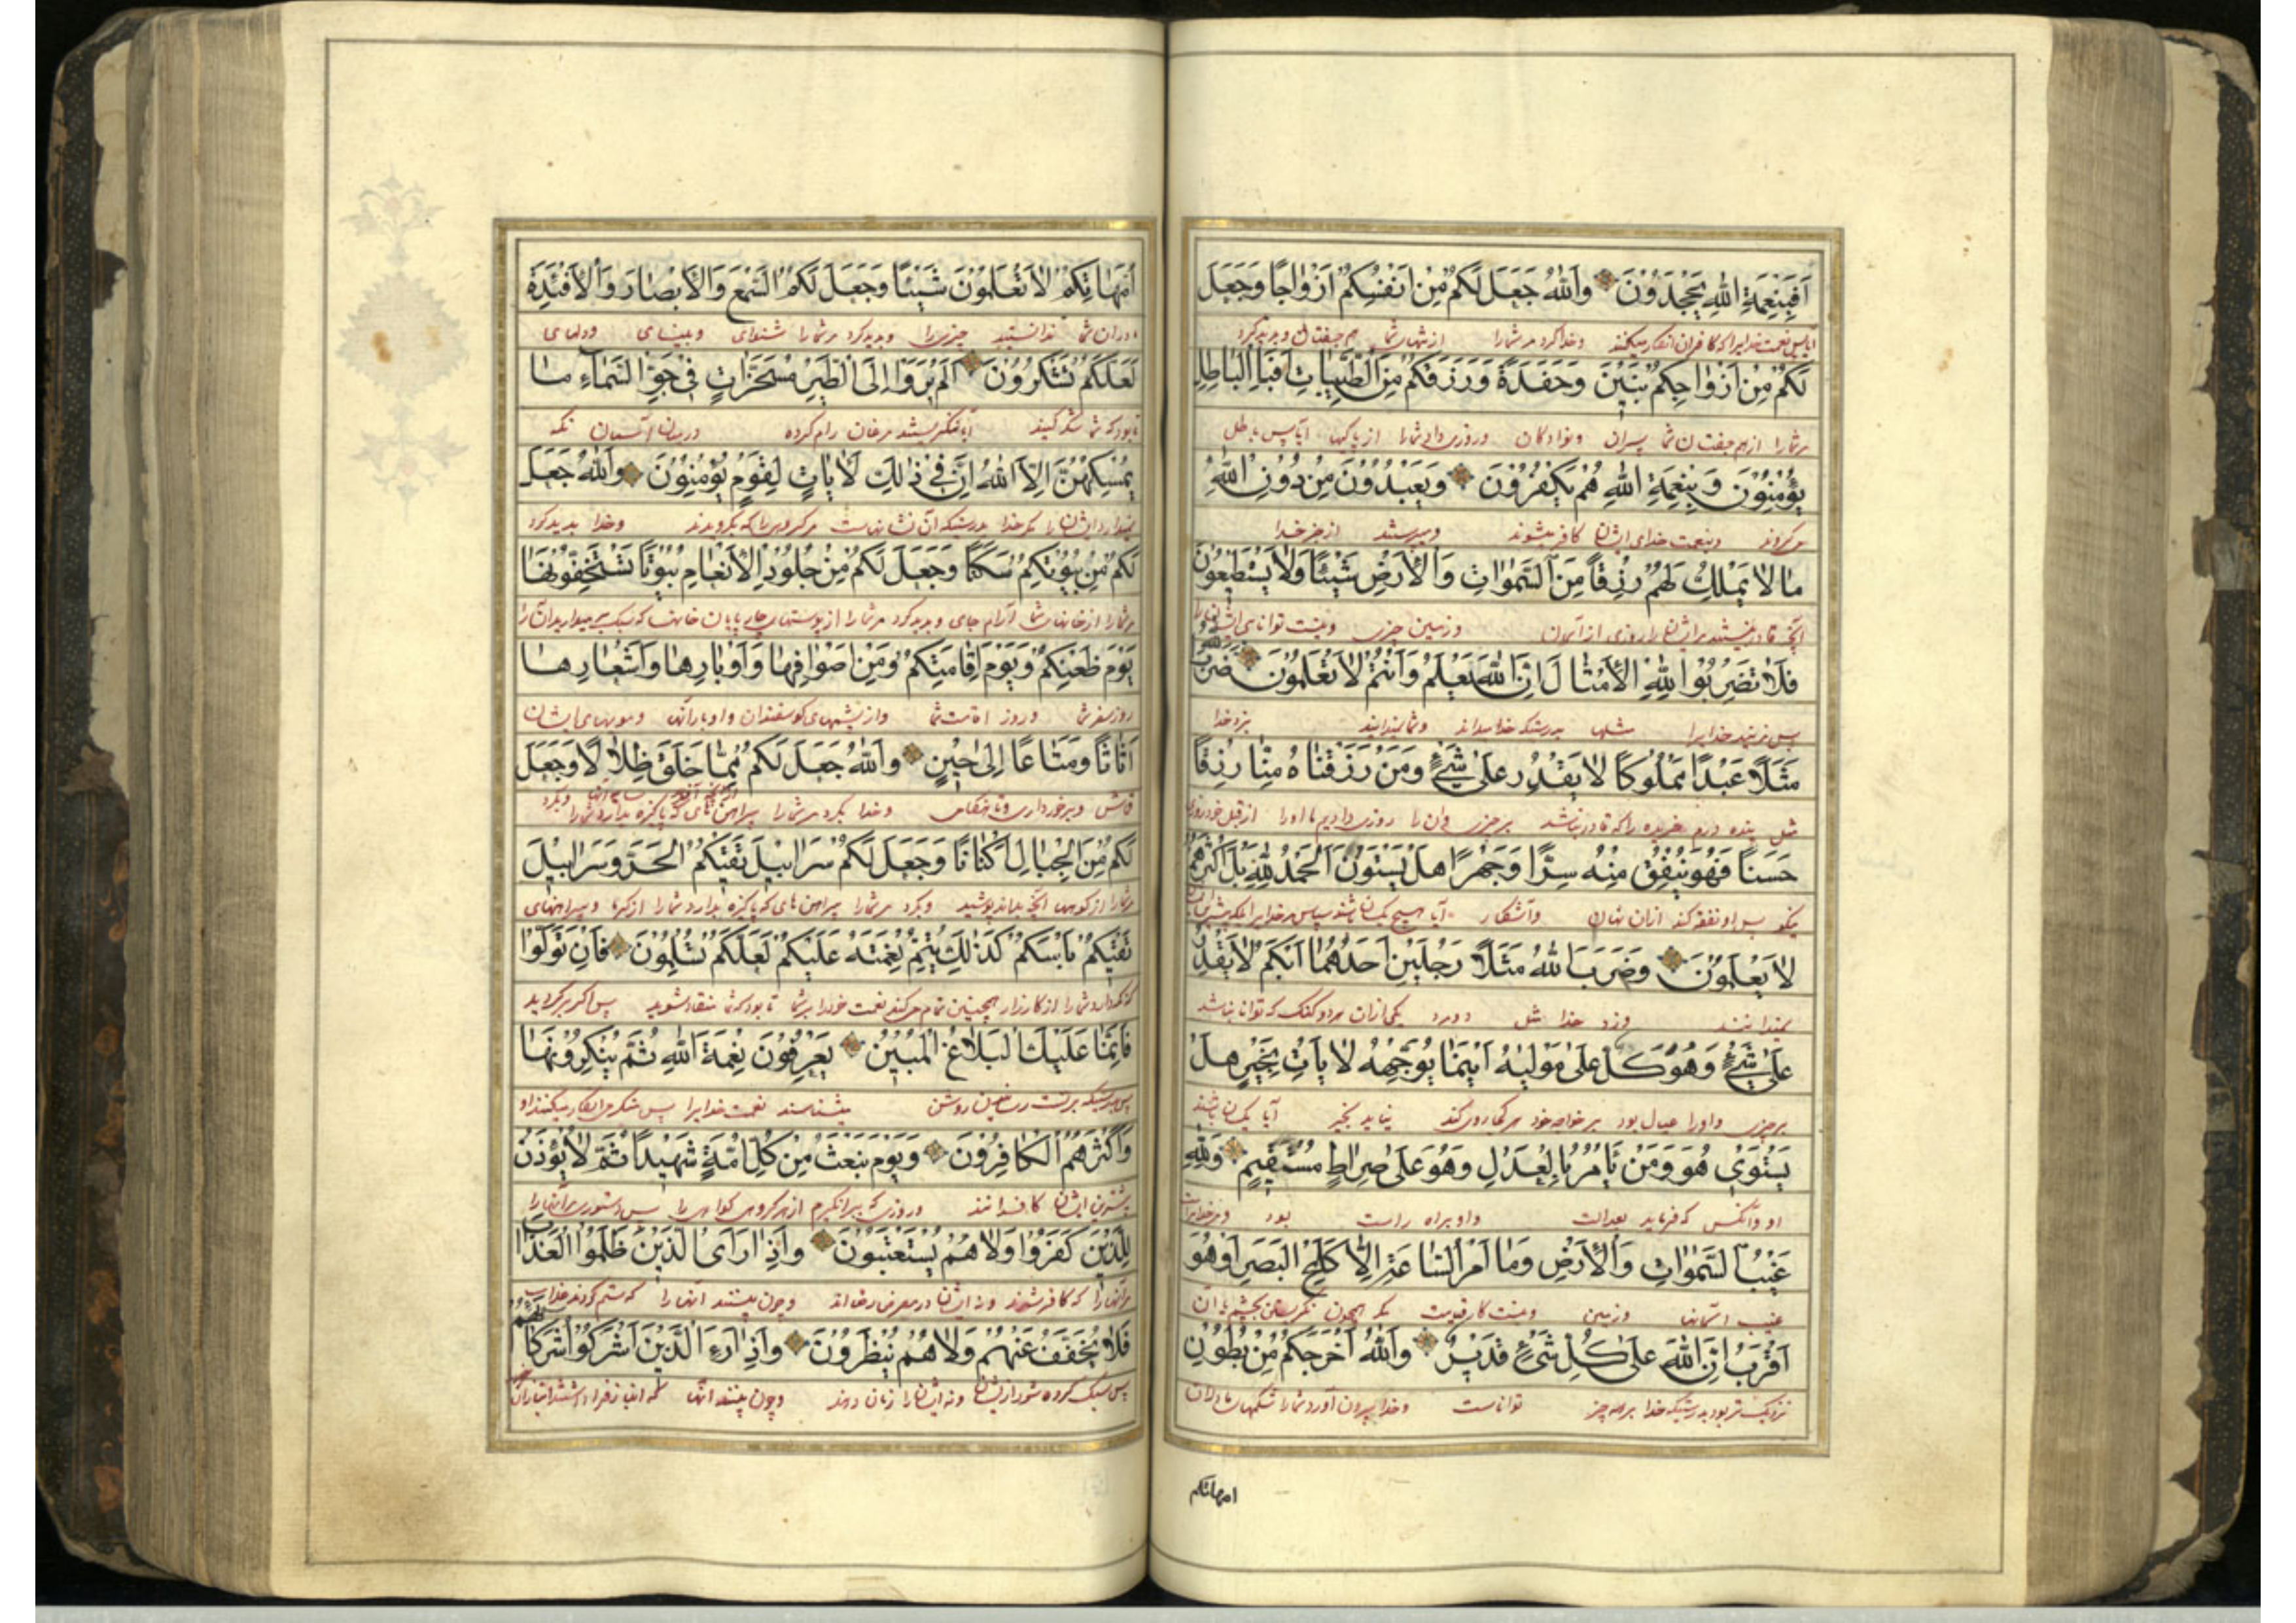 اَفَبِنِعْمَةِ اللهِ يَجْحَدُوْنَ وَاللهُ جَعَلَ لَكُمْ مِنْ اَنْفُسِكُمْ اَزْوَاجًا وَجَعَلَ
وخدا کرد مر شمارا از تنهای شما هم جفتان و پدید کرد
لَكُمْ مِنْ اَزْوَاجِكُمْ بَنِيْنَ وَحَفَدَةً وَرَزَقَكُمْ مِنَ الطَّيِّبَاتِ اَفَبِالْبَاطِلِ
مر شمارا از هم جفتان شما پسران ونوادکان وروزی داد شمارا از پاکیها آیا پس بباطل
يُؤْمِنُوْنَ وَبِنِعْمَةِ اللهِ هُمْ يَكْفُرُوْنَ وَيَعْبُدُوْنَ مِنْ دُوْنِ اللهِ
میکروند وبنعمت خدای ایشان کافر میشوند ومیپرستند از جز خدا
مَا لَا يَمْلِكُ لَهُمْ رِزْقًا مِنَ السَّمٰوَاتِ وَالْاَرْضِ شَيْئًا وَلَا يَسْتَطِيعُوْنَ
روزی از آسمان وزمین چیزی ونیست توانای ایشانرا
فَلَا تَضْرِبُوْا لِلّٰهِ الْاَمْثَالَ اِنَّ اللهَ يَعْلَمُ وَاَنْتُمْ لَا تَعْلَمُوْنَ ضَرَبَ اللهُ
پس مزنید خدایرا مثلها بدرستیکه خدا میداند وشما نمیدانید بزد خدا
مَثَلًا عَبْدًا مَمْلُوكًا لَا يَقْدِرُ عَلٰى شَيْءٍ وَمَنْ رَزَقْنَاهُ مِنَّا رِزْقًا
مثل بنده درم خریده را که قادر نباشد بر چیزی وآن را روزی دادیم ما اورا از قبل خود روزی
حَسَنًا فَهُوَ يُنْفِقُ مِنْهُ سِرًّا وَجَهْرًا هَلْ يَسْتَوُنَ اَلْحَمْدُ لِلّٰهِ بَلْ اَكْثَرُهُمْ
نیکو پس او نفقه کند ازان نهان وآشکار آیا هیچ یکسان باشند سپاس مر خدایرا بلکه بیشترین ایشان
لَا يَعْلَمُوْنَ وَضَرَبَ اللهُ مَثَلًا رَجُلَيْنِ اَحَدُهُمَا اَبْكَمُ لَا يَقْدِرُ
نمیدانند وزد خدا مثل دومرد یکی ازان مرد و کنک که توانا نباشد
عَلٰى شَيْءٍ وَهُوَ كَلٌّ عَلٰى مَوْلٰيهُ اَيْنَمَا يُوَجِّهْهُ لَا يَأْتِ بِخَيْرٍ هَلْ
بر چیزی واورا عیال بود بر خواجه خود هر کجا روی کند نیاید بخیر آیا یکسان باشند
يَسْتَوِى هُوَ وَمَنْ يَأْمُرُ بِالْعَدْلِ وَهُوَ عَلٰى صِرَاطٍ مُسْتَقِيْمٍ وَلِلّٰهِ
او وآنکس که فرماید بعدالت واو براه راست بود ومر خدایراست
غَيْبُ السَّمٰوَاتِ وَالْاَرْضِ وَمَا اَمْرُ السَّاعَةِ اِلَّا كَلَمْحِ الْبَصَرِ اَوْ هُوَ
غیب آسمانها وزمین ونیست کار قیامت مکر همچون نکریستن بچشم یا آن
اَقْرَبُ اِنَّ اللهَ عَلٰى كُلِّ شَيْءٍ قَدِيْرٌ وَاللهُ اَخْرَجَكُمْ مِنْ بُطُوْنِ
نزدیک تر بود بدرستیکه خدا بر همه چیز تواناست وخدا بیرون آورد شمارا از شکمهای مادران
امهاتكم
اُمَّهَاتِكُمْ لَا تَعْلَمُوْنَ شَيْئًا وَجَعَلَ لَكُمُ السَّمْعَ وَالْاَبْصَارَ وَالْاَفْئِدَةَ
مادران شما ندانستید چیزی را وپدید کرد مر شمارا شنوای وبینای ودلهای
لَعَلَّكُمْ تَشْكُرُوْنَ اَلَمْ يَرَوْا اِلَى الطَّيْرِ مُسَخَّرَاتٍ فِيْ جَوِّ السَّمَاءِ مَا
تا بود که شما شکر کنید آیا ننکریستند مرغان رام کرده در میان آسمان نکه
يُمْسِكُهُنَّ اِلَّا اللهُ اِنَّ فِيْ ذٰلِكَ لَاٰيَاتٍ لِقَوْمٍ يُؤْمِنُوْنَ وَاللهُ جَعَلَ
نمیدارد ایشانرا مکر خدا بدرستیکه آن نشانهاست مر کروهی را که بکرویدند وخدا پدید کرد
لَكُمْ مِنْ بُيُوْتِكُمْ سَكَنًا وَجَعَلَ لَكُمْ مِنْ جُلُوْدِ الْاَنْعَامِ بُيُوْتًا تَسْتَخِفُّوْنَهَا
مر شمارا از خانهای شما آرام جای وپدید کرد مر شمارا از پوستهای چارپایان خانها که سبک میدارید آنرا
يَوْمَ ظَعْنِكُمْ وَيَوْمَ اِقَامَتِكُمْ وَمِنْ اَصْوَافِهَا وَاَوْبَارِهَا وَاَشْعَارِهَا
روز سفر شما وروز اقامت شما واز پشمهای کوسفندان واوبار آنها ومویهای ایشان
اَثَاثًا وَمَتَاعًا اِلٰى حِيْنٍ وَاللهُ جَعَلَ لَكُمْ مِمَّا خَلَقَ ظِلَالًا وَجَعَلَ
قماش وبرخورداری تا هنکامی وخدا بکرد مر شمارا
لَكُمْ مِنَ الْجِبَالِ اَكْنَانًا وَجَعَلَ لَكُمْ سَرَابِيْلَ تَقِيْكُمُ الْحَرَّ وَسَرَابِيْلَ
مر شمارا از کوهها آنچه بدان پوشید وبکرد مر شمارا پیراهن های که پاکیزه بدارد شمارا از کرما وپیراهنهای
تَقِيْكُمْ بَأْسَكُمْ كَذٰلِكَ يُتِمُّ نِعْمَتَهُ عَلَيْكُمْ لَعَلَّكُمْ تُسْلِمُوْنَ فَاِنْ تَوَلَّوْا
که نکه دارد شمارا از کارزار همچنین تمام میکند نعمت خودرا بر شما تا بود که شما منقاد شوید پس اکر برکردید
فَاِنَّمَا عَلَيْكَ الْبَلَاغُ الْمُبِيْنُ يَعْرِفُوْنَ نِعْمَةَ اللهِ ثُمَّ يُنْكِرُوْنَهَا
پس بدرستیکه بر تست رسانیدن روشن میشناسند نعمت خدایرا پس منکر میشوند
وَاَكْثَرُهُمُ الْكَافِرُوْنَ وَيَوْمَ نَبْعَثُ مِنْ كُلِّ اُمَّةٍ شَهِيْدًا ثُمَّ لَا يُؤْذَنُ
بیشترین ایشان کافرانند وروزی که برانکیزیم از هر کروهی کواهی را پس دستوری
لِلَّذِيْنَ كَفَرُوْا وَلَا هُمْ يُسْتَعْتَبُوْنَ وَاِذَا رَاَى الَّذِيْنَ ظَلَمُوا الْعَذَابَ
مر آنهارا که کافر شدند ونه ایشان در معرض رضا اند وچون بینند آنهارا که ستم کردند عذاب
فَلَا يُخَفَّفُ عَنْهُمْ وَلَا هُمْ يُنْظَرُوْنَ وَاِذَا رَءَا الَّذِيْنَ اَشْرَكُوْا شُرَكَاءَهُمْ
پس سبک کرده شود از ایشان ونه ایشانرا زمان دهند وچون بینند آنها